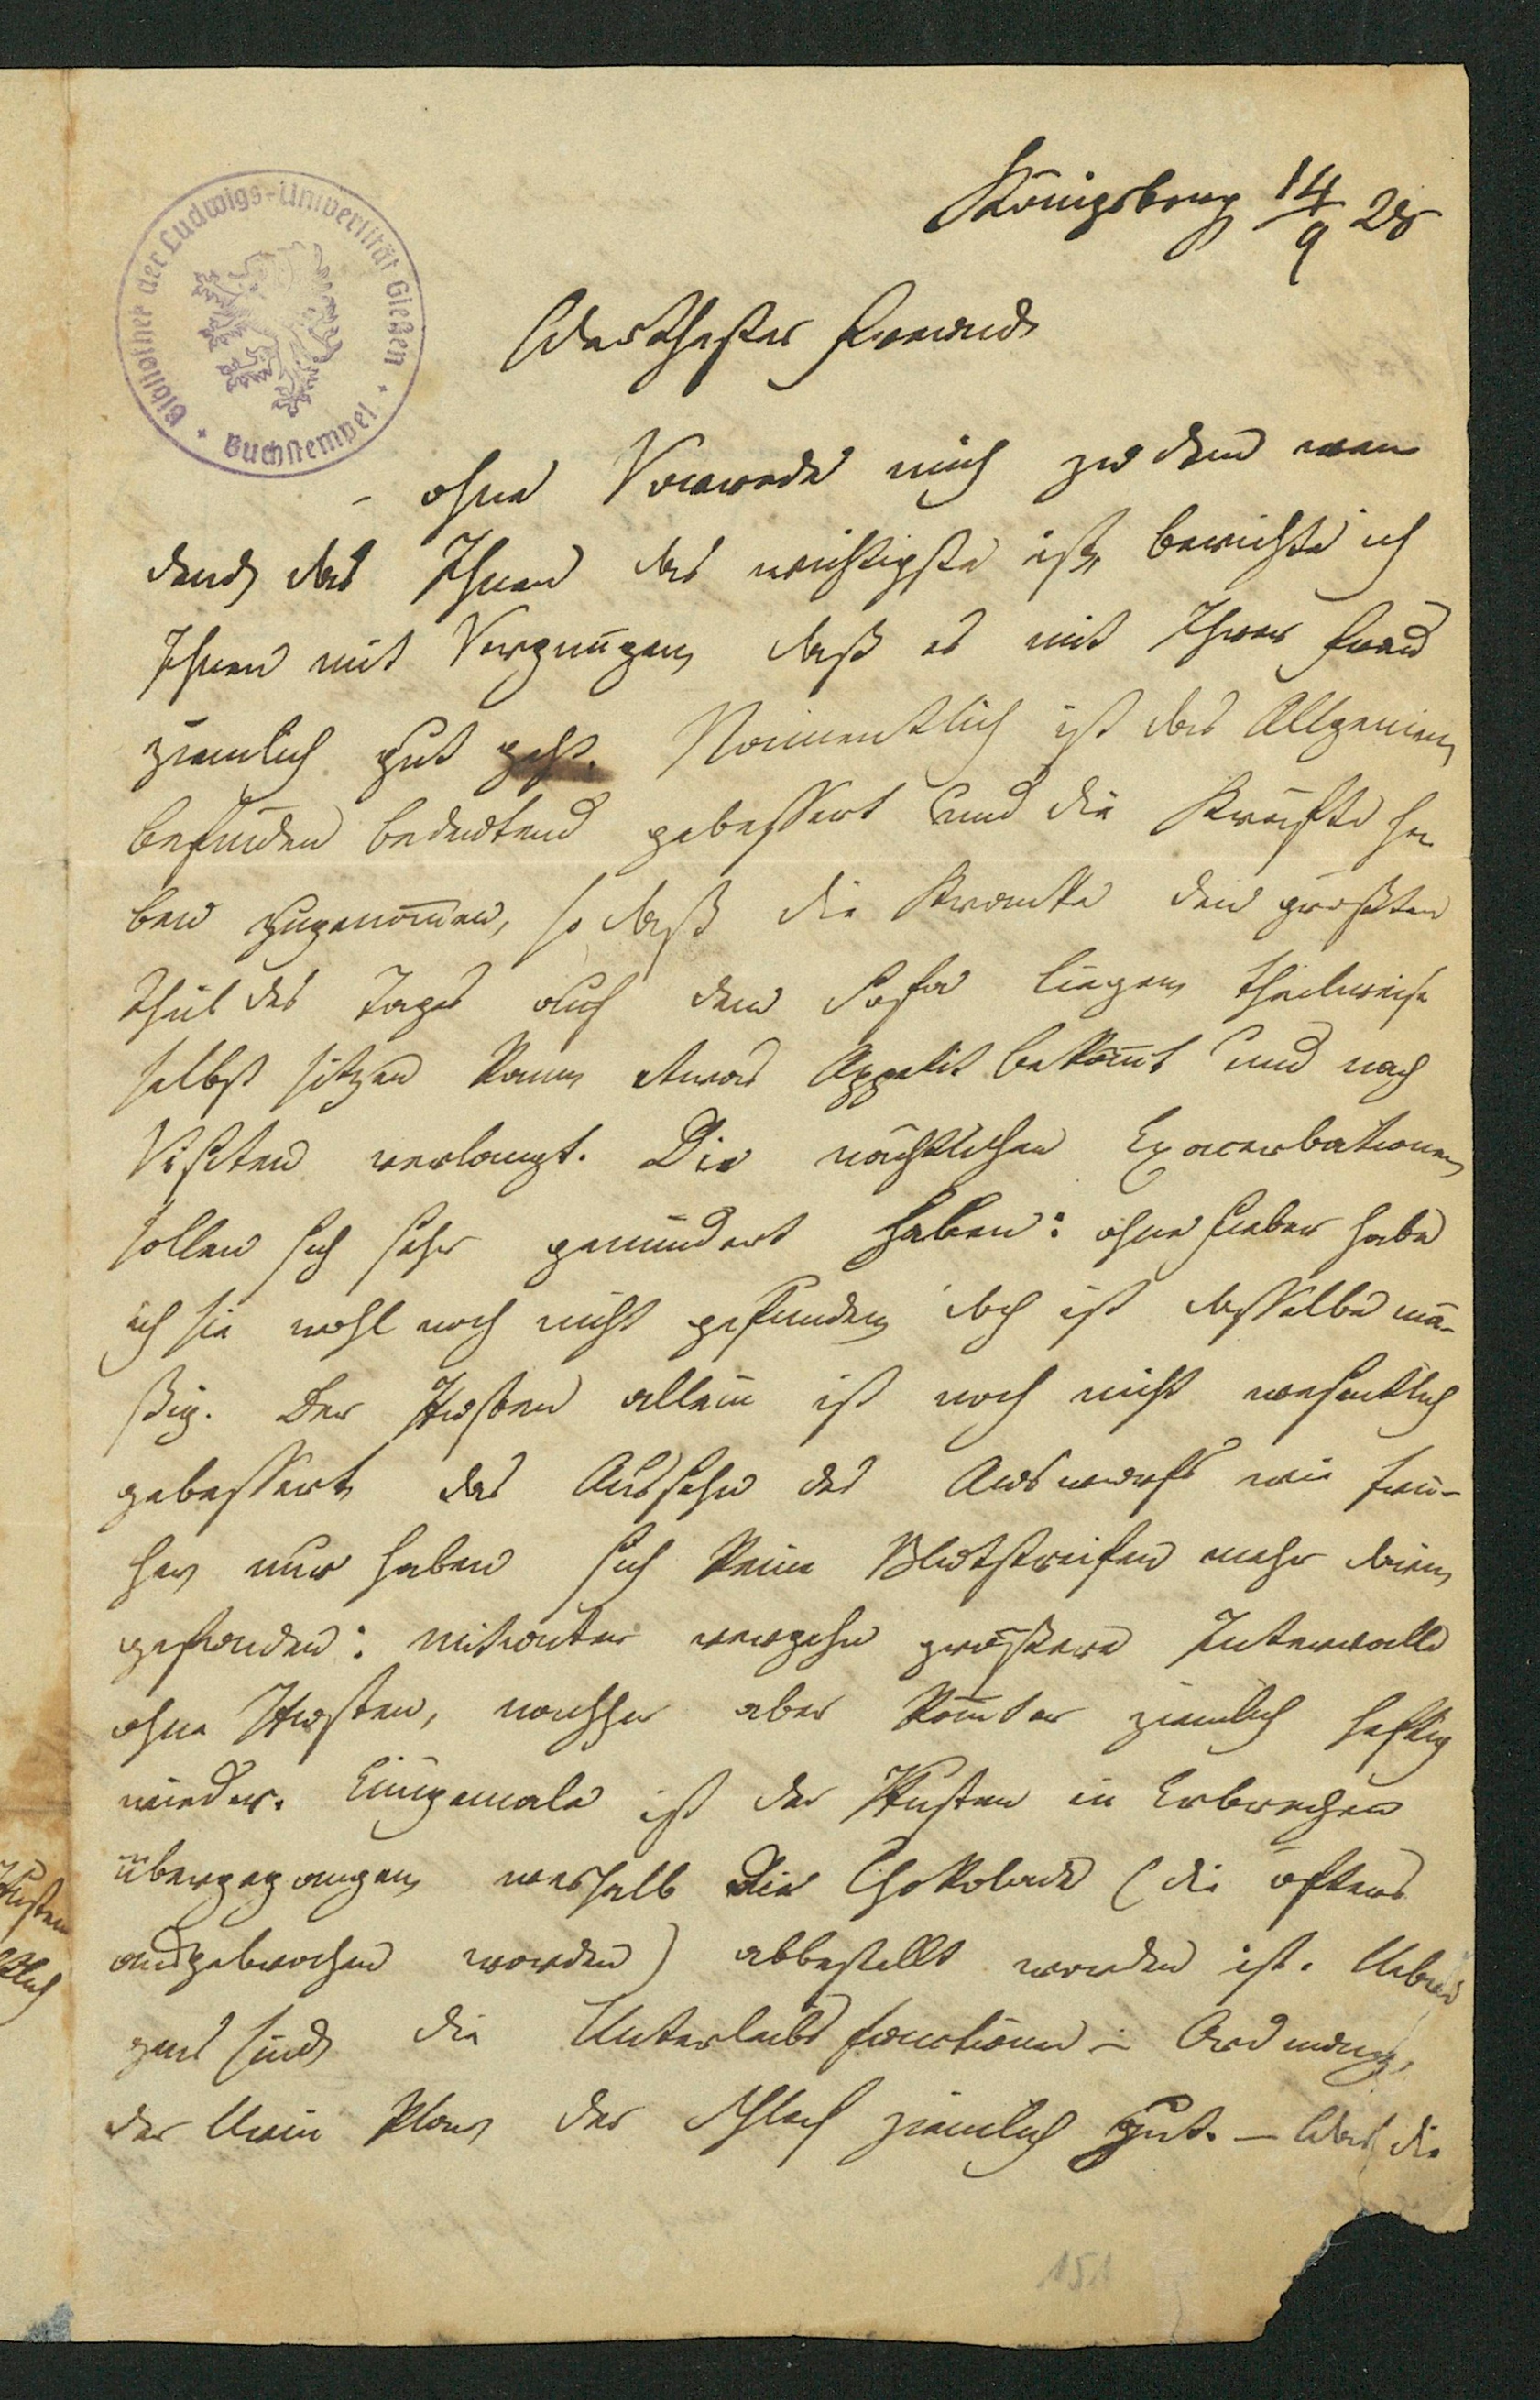 Königsberg 14/9 28
Bibliothek der Ludwigs-Universität Gießen
Buchstempel
Werthester Freund
- ohne Vorrede mich zu dem wen
dend, das Ihnen das wichtigste ist, berichte ich
Ihnen mit Vergnügen, daß es mit Ihrer Frau
ziemlich gut geht. Namentlich ist das Allgemein
befinden bedeutend gebessert und die Kräfte ha
ben zugenom̅en, so daß die Kranke den größten
Theil des Tages auf dem Sofa liegen, theilweise
selbst sitzen kann, etwas Appetit bekom̅t und nach
Visiten verlangt. Die nächtlichen Exacerbationen
sollen sich sehr gemindert haben: ohne Fieber habe
ich sie wohl noch nicht gefunden, doch ist dasselbe mä-
ßig. Der Husten allein ist noch nicht wesentlich
gebessert, das Aussehn des Auswurfs wie frü-
her, nur haben sich keine Blutstreifen mehr darin
gefunden: mitunter vergehn größere Intervalle
ohne Husten, nachher aber kom̅t er ziemlich heftig
wieder. Einigemale ist der Husten in Erbrechen
übergegangen, weshalb die Chokolade (die öfters
ausgebrochen worden) abbestellt worden ist. Uebri
gens sind die Unterleibsfunctionen in Ordnung,
der Urin klar, der Schlaf ziemlich gut. - Was die
Husten
151